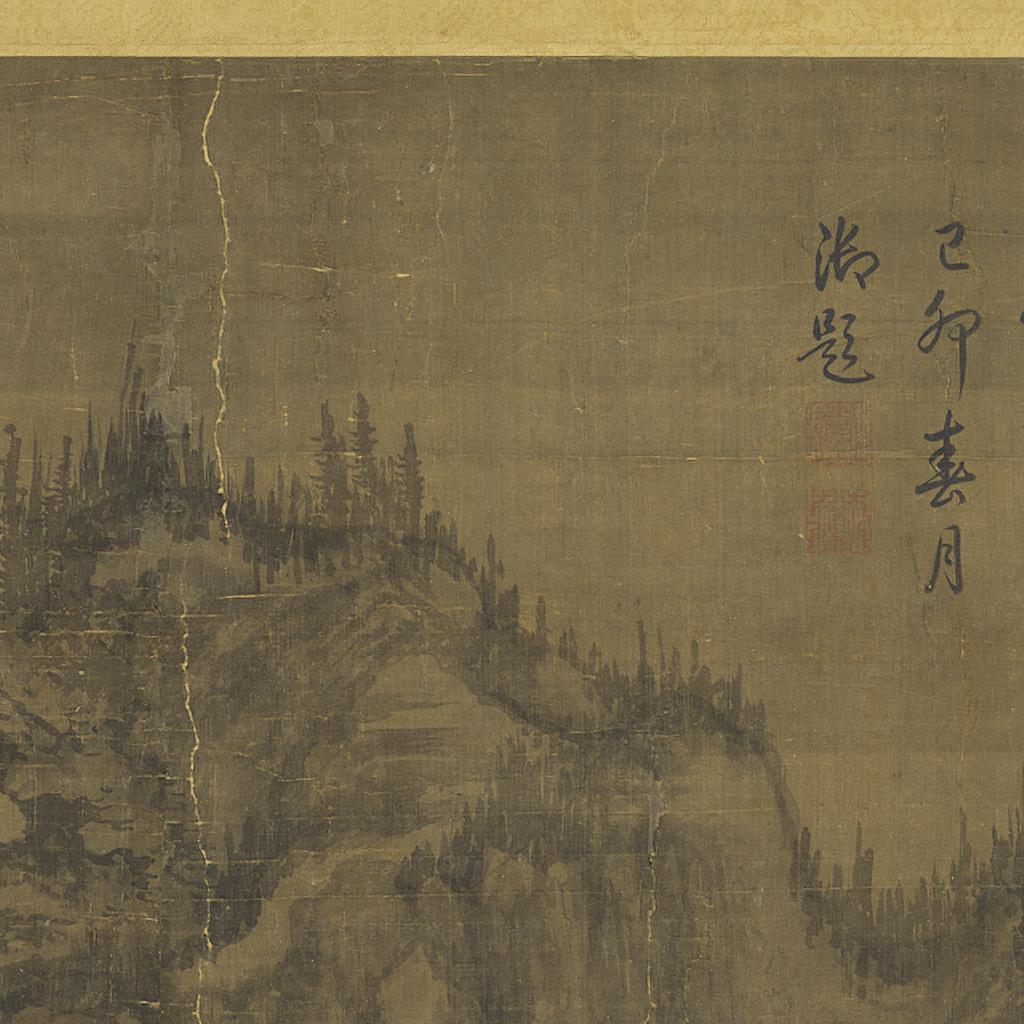 己卯春月
御題